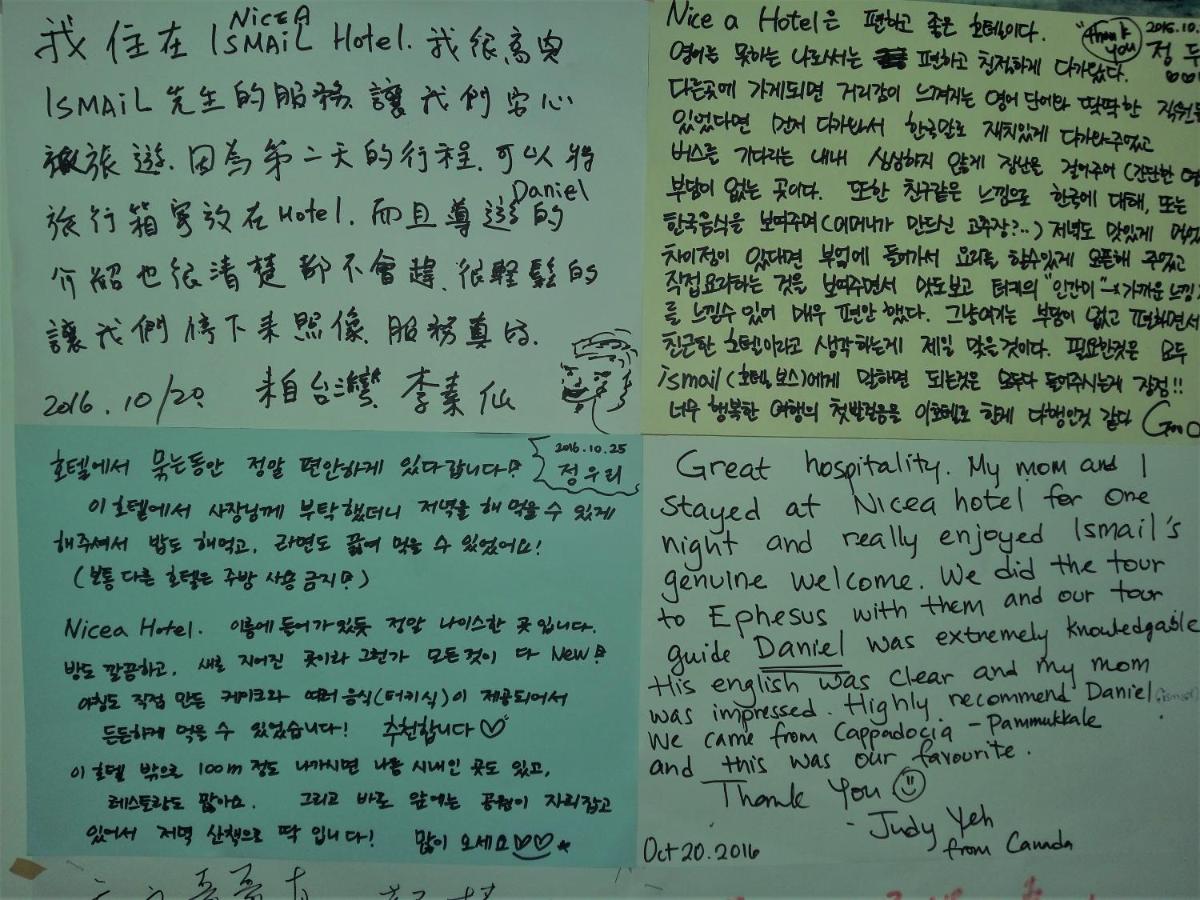 NiCEA
我住在 ISMAiL Hotel. 我很高興
ISMAiL 先生的服務 讓我們安心
旅遊. 因為第二天的行程. 可以將
Daniel
旅行箱寄放在Hotel. 而且導遊的
介紹也很清楚 都不會趕. 很輕鬆的
讓我們停下來照像. 服務真的.
2016.10/20. 來自台灣 李 仙
Nice a Hotel은 편하고 좋은 호텔이다.
"thank you
2016.10.
정우
영어를 못하는 나로써는 편하고 친절하게 다가왔다.
다른곳에 가게되면 거리감이 느껴지는 영어 단어와 딱딱한 직원들
있었다면 먼저 다가와서 한국말로 재치있게 다가와주었고
버스를 기다리는 내내 심심하지 않게 장난을 걸어주어 (간단한 영
부담이 없는 곳이다. 또한 친구같은 느낌으로 한국에 대해, 또는
한국음식을 보여주며 (어머니가 만드신 고추장?..) 저녁도 맛있게 먹었
차이점이 있다면 부엌에 들어가서 요리를 할수있게 오픈해 주었고
직접요리하는 것을 보여주면서 맛도보고 터키의 "인간미" 가까운 느낌
를 느낄수 있어 매우 편안했다. 그냥여기는 부담이 없고 편하면서
친근한 호텔이라고 생각하는게 제일 맞을것이다. 필요한것은 모두
ismail (호텔 보스)에게 말하면 되는것은 모두다 들어주시는게 장점!!
너무 행복한 여행의 첫발걸음을 이호텔로 한게 다행인것 같다 Goo
2016.10.25
정우리
호텔에서 묵는동안 정말 편안하게 있다갑니다!
이 호텔에서 사장님께 부탁했더니 저녁을 해 먹을 수 있게
해주셔서 밥도 해먹고, 라면도 끓여 먹을 수 있었어요!
(보통 다른 호텔은 주방 사용 금지!)
Nicea Hotel. 이름에 들어가 있듯 정말 나이스한 곳 입니다.
방도 깔끔하고, 새로 지어진 곳이라 그런가 모든것이 다 New!
아침도 직접 만든 케이크와 여러음식(터키식)이 제공되어서
든든하게 먹을 수 있었습니다! 추천합니다♡
이 호텔 밖으로 100m 정도 나가시면 나름 시내인 곳도 있고,
레스토랑도 많아요. 그리고 바로 앞에는 공원이 자리잡고
있어서 저녁 산책으로 딱 입니다! 많이 오세요♡♡
Great hospitality. My mom and I
stayed at Nicea hotel for one
night and really enjoyed Ismail's
genuine welcome. We did the tour
to Ephesus with them and our tour
guide Daniel was extremely knowledgable
His english was clear and my mom
was impressed. Highly recommend Daniel
We came from Cappadocia - Pammukkale
and this was our favourite.
Thank You ☺
- Judy Yeh
from Canada
Oct 20.2016